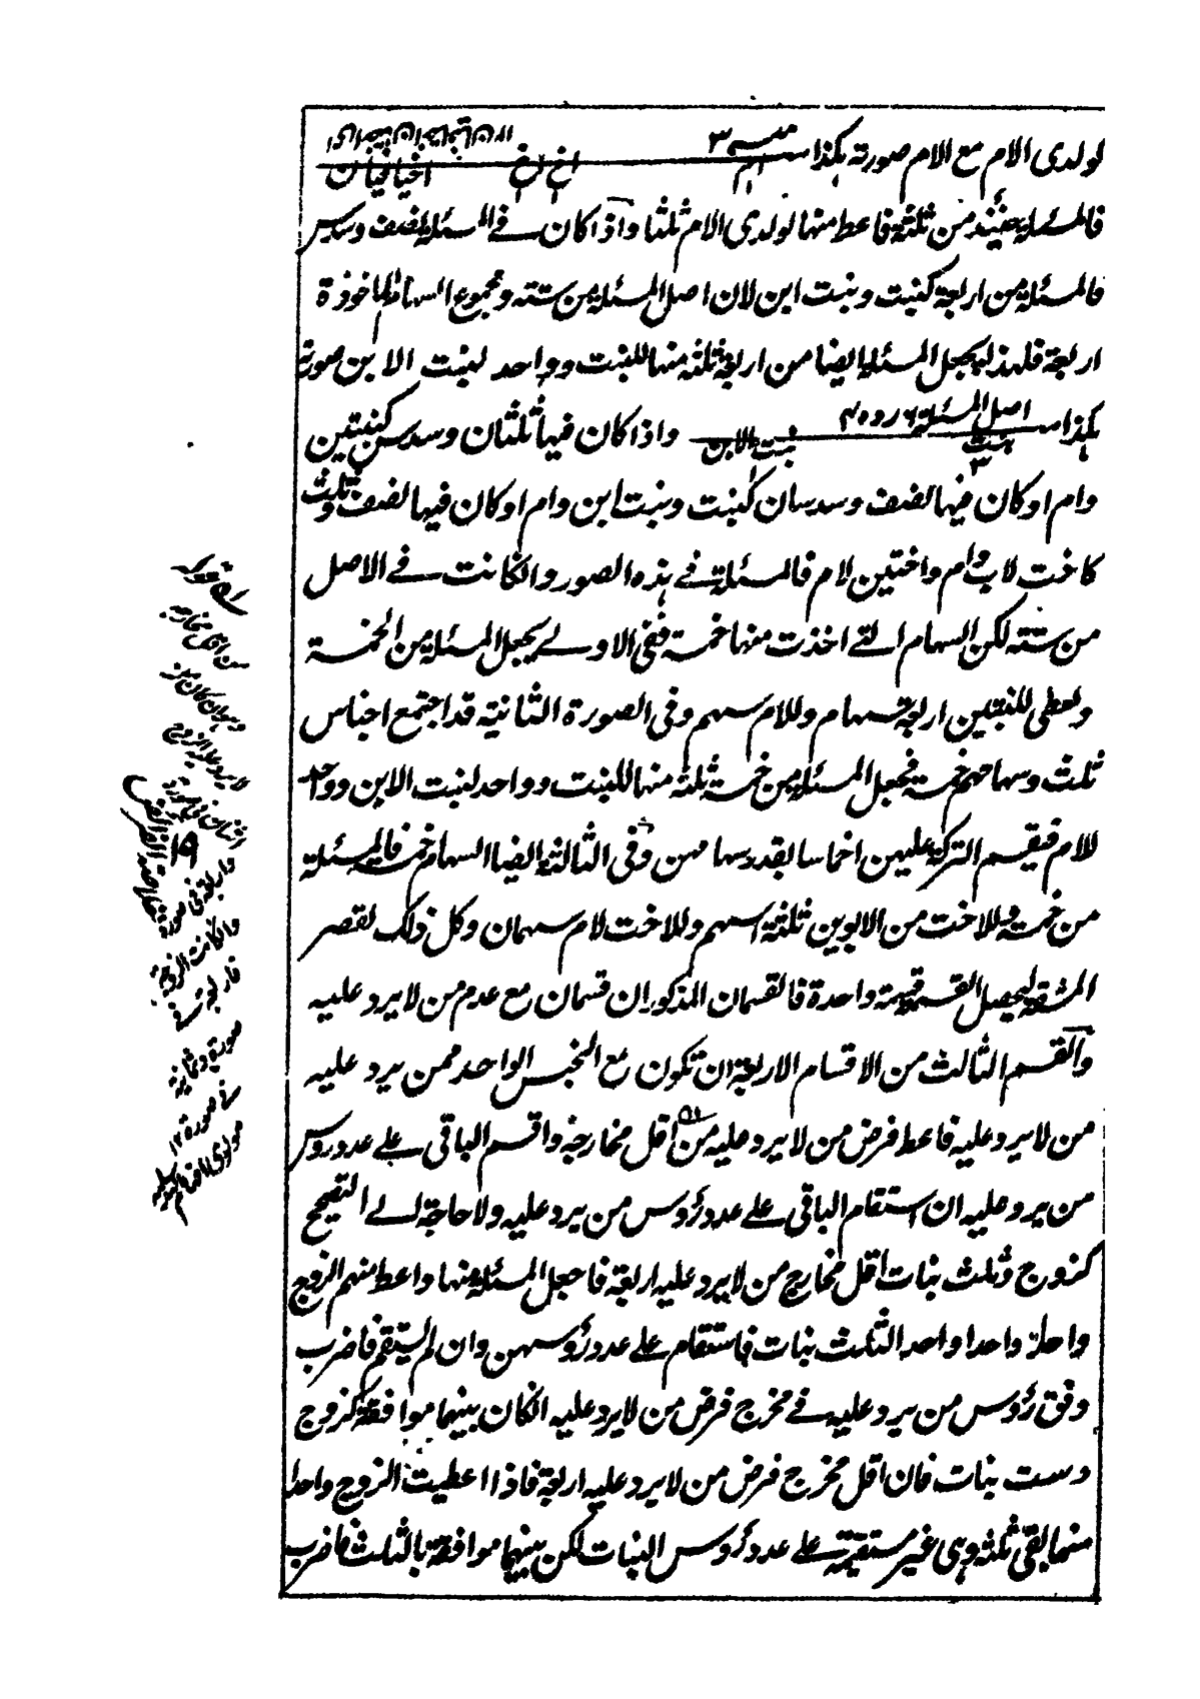 لولدى الام مع الام صورته هكذا مسئلہ ٣
ام اخ اخ اخيافيان
فالمسئلة حينئذ من ثلثة فاعط منها لولدى الام ثلثا واذا كان فى المسئلة نصف وسدس
فالمسئلة من اربعة كبنت وبنت ابن لان اصل المسئلة من ستة ومجموع السهام الماخوذة
اربعة فلهذا يجعل المسئلة ايضا من اربعة ثلثة منها للبنت وواحد لبنت الابن صورته
هكذا اصل المسئلة ٦ رد ه ٤ واذا كان فيها ثلثان وسدس كبنتين
بنت ٣ بنت الابن
وام او كان فيها نصف وسدسان كبنت وبنت ابن وام او كان فيها نصف وثلث
كاخت لاب وام واختين لام فالمسئلة فى هذه الصور وان كانت فى الاصل
من ستة لكن السهام التى اخذت منها خمسة ففى الاولى يجعل المسئلة من الخمسة
ويعطى للبنتين اربعة سهام وللام سهم وفى الصورة الثانية قد اجتمع اجناس
ثلث وسهامهم خمسة فيجعل المسئلة من خمسة ثلثة منها للبنت وواحد لبنت الابن وواحد
للام فيقسم التركة عليهن اخماسا بقدر سهامهن وفى الثالثة ايضا السهام خمسة فالمسئلة
من خمسة وللاخت من الابوين ثلثة اسهم وللاخت لام سهمان وكل ذلك لقصر
المشقة ليحصل القسمة قسمة واحدة فالقسمان المذكوران قسمان مع عدم من لا يرد عليه
والقسم الثالث من الاقسام الاربعة ان تكون مع الجنس الواحد ممن يرد عليه
من لا يرد عليه فاعط فرض من لا يرد عليه من اقل مخارجه واقسم الباقى على عدد رؤس
من يرد عليه ان استقام الباقى على عدد رؤس من يرد عليه ولا حاجة الى التصحيح
كزوج وثلث بنات اقل مخارج من لا يرد عليه اربعة فاجعل المسئلة منها واعط منهم الزوج
واحدا واحدا واحد الثلث بنات فاستقام على عدد رؤسهن وان لم يستقم فاضرب
وفق رؤس من يرد عليه فى مخرج فرض من لا يرد عليه انكان بينهما موافقة كزوج
وست بنات فان اقل مخرج فرض من لا يرد عليه اربعة فاذا اعطيت الزوج واحدا
منها بقى ثلثة وهى غير مستقيمة على عدد رؤس البنات لكن بينهما موافقة بالثلث فاضرب
قوله
من اقل مخارجه
وهو ان كان من
لا يرد عليه الزوج
اثنان فى صورة
واربعة فى صورة
وان كانت الزوجة
فاربعة فى
صورة وثمانية
فى صورة ١٢